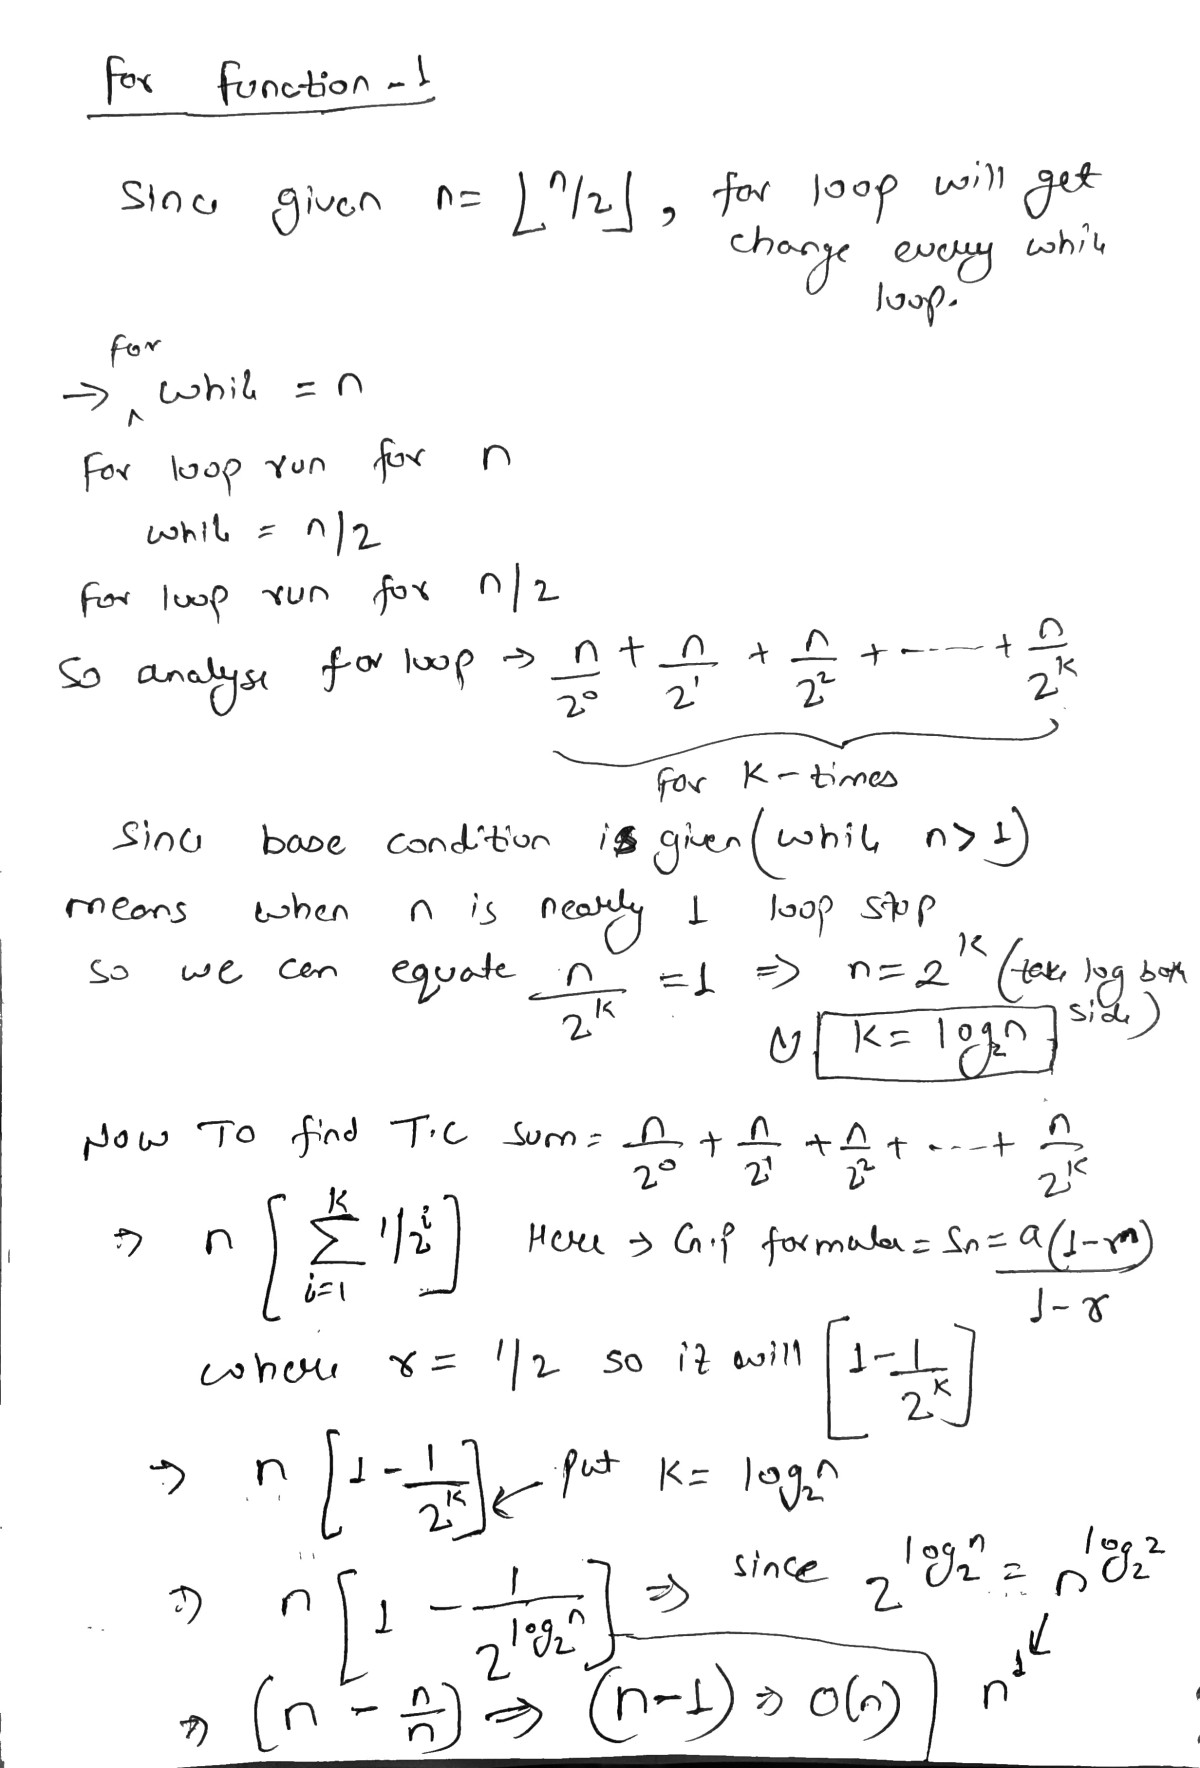 for function-1
Sinc given n= ⌊n/2⌋, for loop will get
change every whil
loop.
for
→ ^ whil = n
For loop run for n
whil = n/2
for loop run for n/2
So analyse for loop → n/2⁰ + n/2¹ + n/2² + ----- + n/2ᵏ
for K-times
Sinc base condition is given (whil n>1)
means when n is nearly 1 loop stop
so we can equate n/2ᵏ =1 ⇒ n=2ᵏ (take log both
side)
K= log₂n
Now TO find T.C sum= n/2⁰ + n/2¹ + n/2² + ---- + n/2ᵏ
⇒ n [ K Σ i=1 1/2ⁱ ] Here → G.P formula = Sn= a(1-rⁿ)/1-r
where r= 1/2 so it will [1-1/2ᵏ]
⇒ n [1-1/2ᵏ] ← put K= log₂n
⇒ n [1 - 1/2^log₂n] ⇒ since 2^log₂n = n^log₂2
⇒ (n - n/n) ⇒ (n-1) ⇒ O(n) n¹